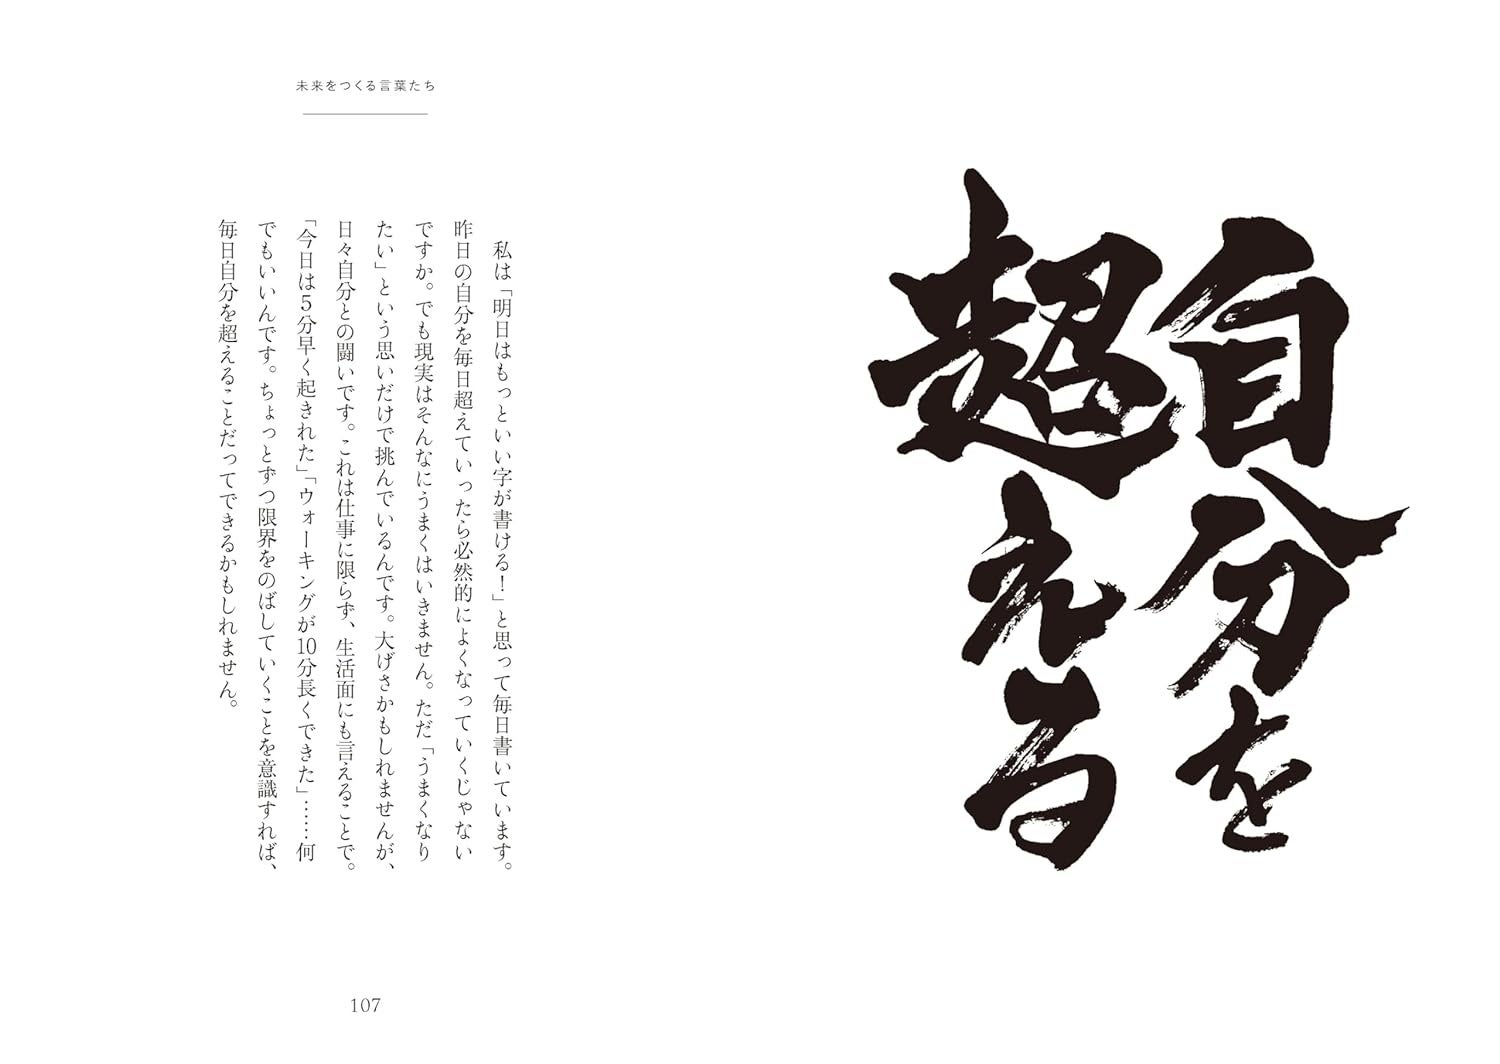 自分を
超える
未来をつくる言葉たち
私は「明日はもっといい字が書ける!」と思って毎日書いています。
昨日の自分を毎日超えていったら必然的によくなっていくじゃない
ですか。でも現実はそんなにうまくはいきません。ただ「うまくなり
たい」という思いだけで挑んでいるんです。大げさかもしれませんが、
日々自分との闘いです。これは仕事に限らず、生活面にも言えることで。
「今日は5分早く起きれた」「ウォーキングが10分長くできた」……何
でもいいんです。ちょっとずつ限界をのばしていくことを意識すれば、
毎日自分を超えることだってできるかもしれません。
107